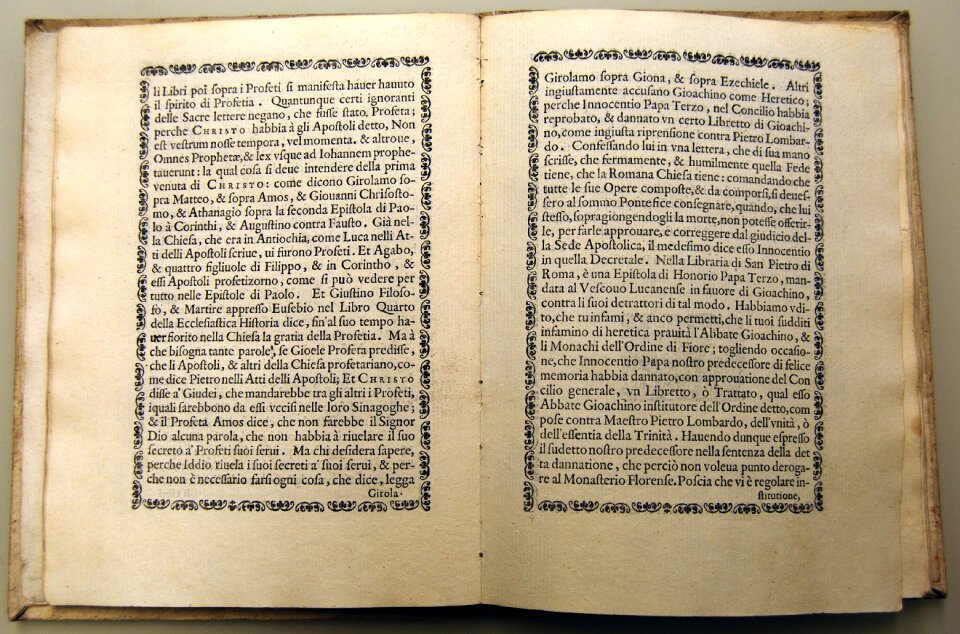 li Libri poi sopra i Profeti si manifesta hauer hauuto
il spirito di Profetia. Quantunque certi ignoranti
delle Sacre lettere negano, che fusse stato, Profeta;
perche CHRISTO habbia à gli Apostoli detto, Non
est vestrum nosse tempora, vel momenta. & altroue,
Omnes Prophetæ, & lex vsque ad Iohannem prophe-
tauerunt: la qual cosa si deue intendere della prima
venuta di CHRISTO: come dicono Girolamo so-
pra Matteo, & sopra Amos, & Giouanni Chrisosto-
mo, & Athanagio sopra la seconda Epistola di Pao-
lo à Corinthi, & Augustino contra Fausto. Già nel-
la Chiesa, che era in Antiochia, come Luca nelli At-
ti delli Apostoli scriue, ui furono Profeti. Et Agabo,
& quattro figliuole di Filippo, & in Corintho, &
essi Apostoli profetizorno, come si può vedere per
tutto nelle Epistole di Paolo. Et Giustino Filoso-
fo, & Martire appresso Eusebio nel Libro Quarto
della Ecclesiastica Historia dice, sin'al suo tempo ha-
uer fiorito nella Chiesa la gratia della Profetia. Ma à
che bisogna tante parole, se Gioele Profeta predisse,
che li Apostoli, & altri della Chiesa profetariano, co-
me dice Pietro nelli Atti delli Apostoli; Et CHRISTO
disse a' Giudei, che mandarebbe tra gli altri i Profeti,
iquali sarebbono da essi vccisi nelle loro Sinagoghe;
& il Profeta Amos dice, che non farebbe il Signor
Dio alcuna parola, che non habbia à riuelare il suo
secreto a' Profeti suoi serui. Ma chi desidera sapere,
perche Iddio riuela i suoi secreti a' suoi serui, & per-
che non è necessario farsi ogni cosa, che dice, legga
Girola-
Girolamo sopra Giona, & sopra Ezechiele. Altri
ingiustamente accusano Gioachino come Heretico;
perche Innocentio Papa Terzo, nel Concilio habbia
reprobato, & dannato vn certo Libretto di Gioachi-
no, come ingiusta riprensione contra Pietro Lombar-
do. Confessando lui in vna lettera, che di sua mano
scrisse, che fermamente, & humilmente quella Fede
tiene, che la Romana Chiesa tiene: comandando che
tutte le sue Opere composte, & da comporsi, si deues-
sero al sommo Pontefice consegnare, quando, che lui
stesso, sopragiongendogli la morte, non potesse offerir-
le, per farle approuare, e correggere dal giudicio del-
la Sede Apostolica, il medesimo dice esso Innocentio
in quella Decretale. Nella Libraria di San Pietro di
Roma, è una Epistola di Honorio Papa Terzo, man-
data al Vescouo Lucanense in fauore di Gioachino,
contra li suoi detrattori di tal modo. Habbiamo vdi-
to, che tu infami, & anco permetti, che li tuoi sudditi
infamino di heretica prauità l'Abbate Gioachino, &
li Monachi dell'Ordine di Fiore; togliendo occasio-
ne, che Innocentio Papa nostro predecessore di felice
memoria habbia dannato, con approuatione del Con
cilio generale, vn Libretto, ò Trattato, qual esso
Abbate Gioachino institutore dell'Ordine detto, com
pose contra Maestro Pietro Lombardo, dell'vnità, ò
dell'essentia della Trinità. Hauendo dunque espresso
il sudetto nostro predecessore nella sentenza della det
ta dannatione, che perciò non voleua punto deroga-
re al Monasterio Florense. Poscia che vi è regolare in-
stitutione,